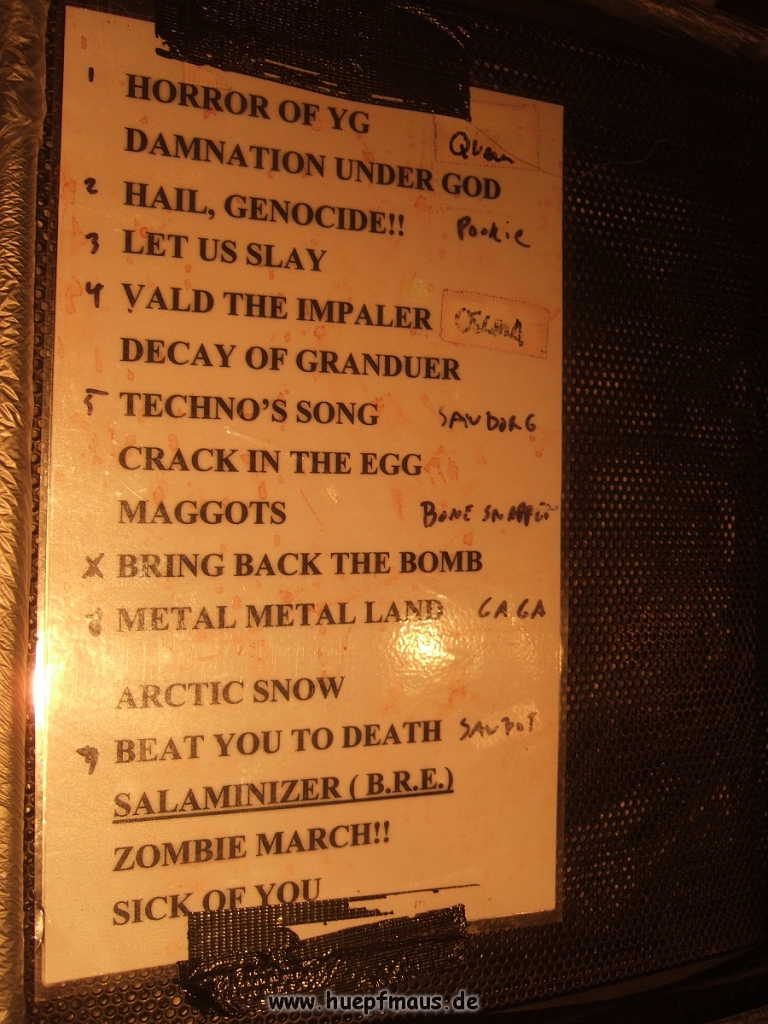 1 HORROR OF YG
DAMNATION UNDER GOD
2 HAIL, GENOCIDE!! Pookie
3 LET US SLAY
4 VALD THE IMPALER
DECAY OF GRANDUER
5 TECHNO'S SONG SAWBORG
CRACK IN THE EGG
MAGGOTS BONE SNAPPER
X BRING BACK THE BOMB
8 METAL METAL LAND GAGA
ARCTIC SNOW
9 BEAT YOU TO DEATH
SALAMINIZER ( B.R.E.)
ZOMBIE MARCH!!
SICK OF YOU
www.huepfmaus.de